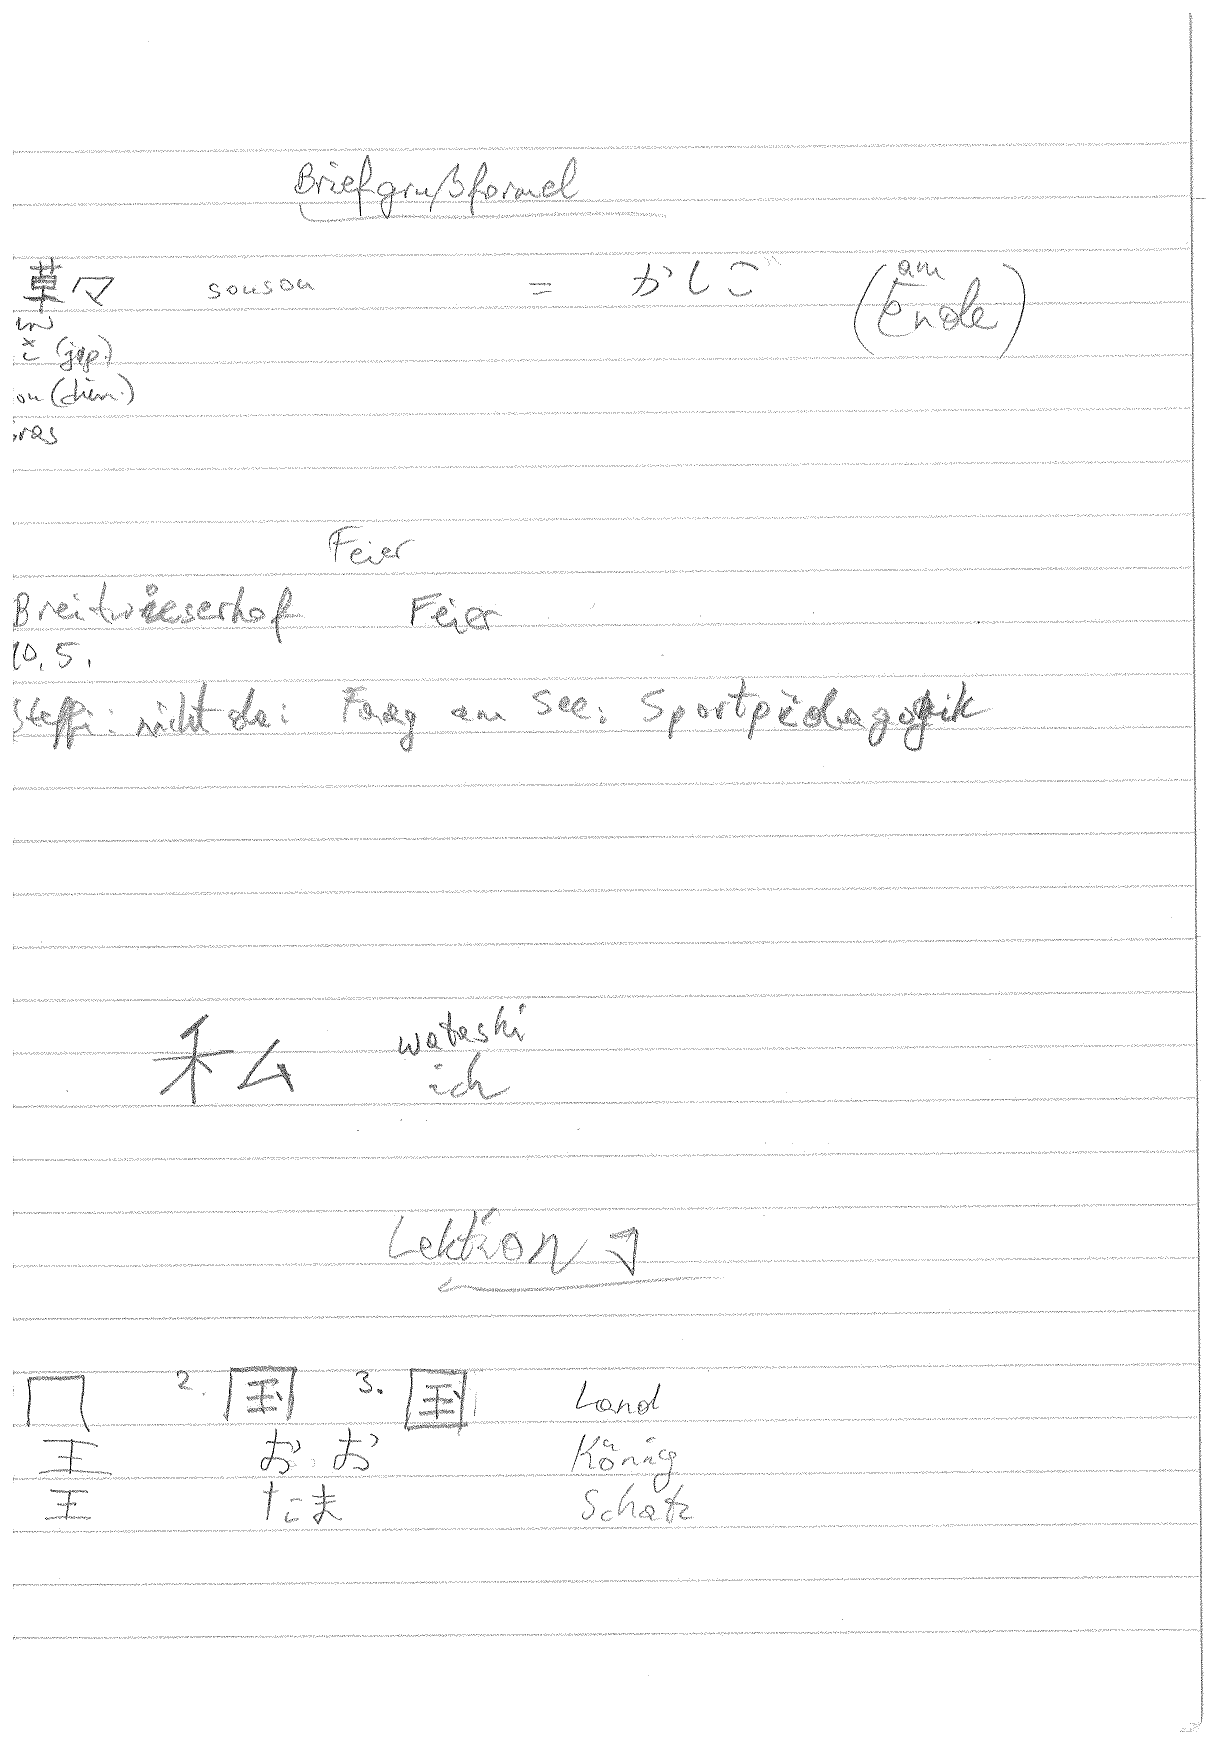 Briefgrußformel
草々 sousou = かしこ (am Ende)
(jap.)
ou (chin.)
Gras
Feier
Breitwieserhof Feier
10.5.
Steffi: nicht da: am See: Sportpädagogik
私 watashi
ich
Lektion 1
冂 2. 国 3. 国 Land
王 おお König
玉 たま Schatz